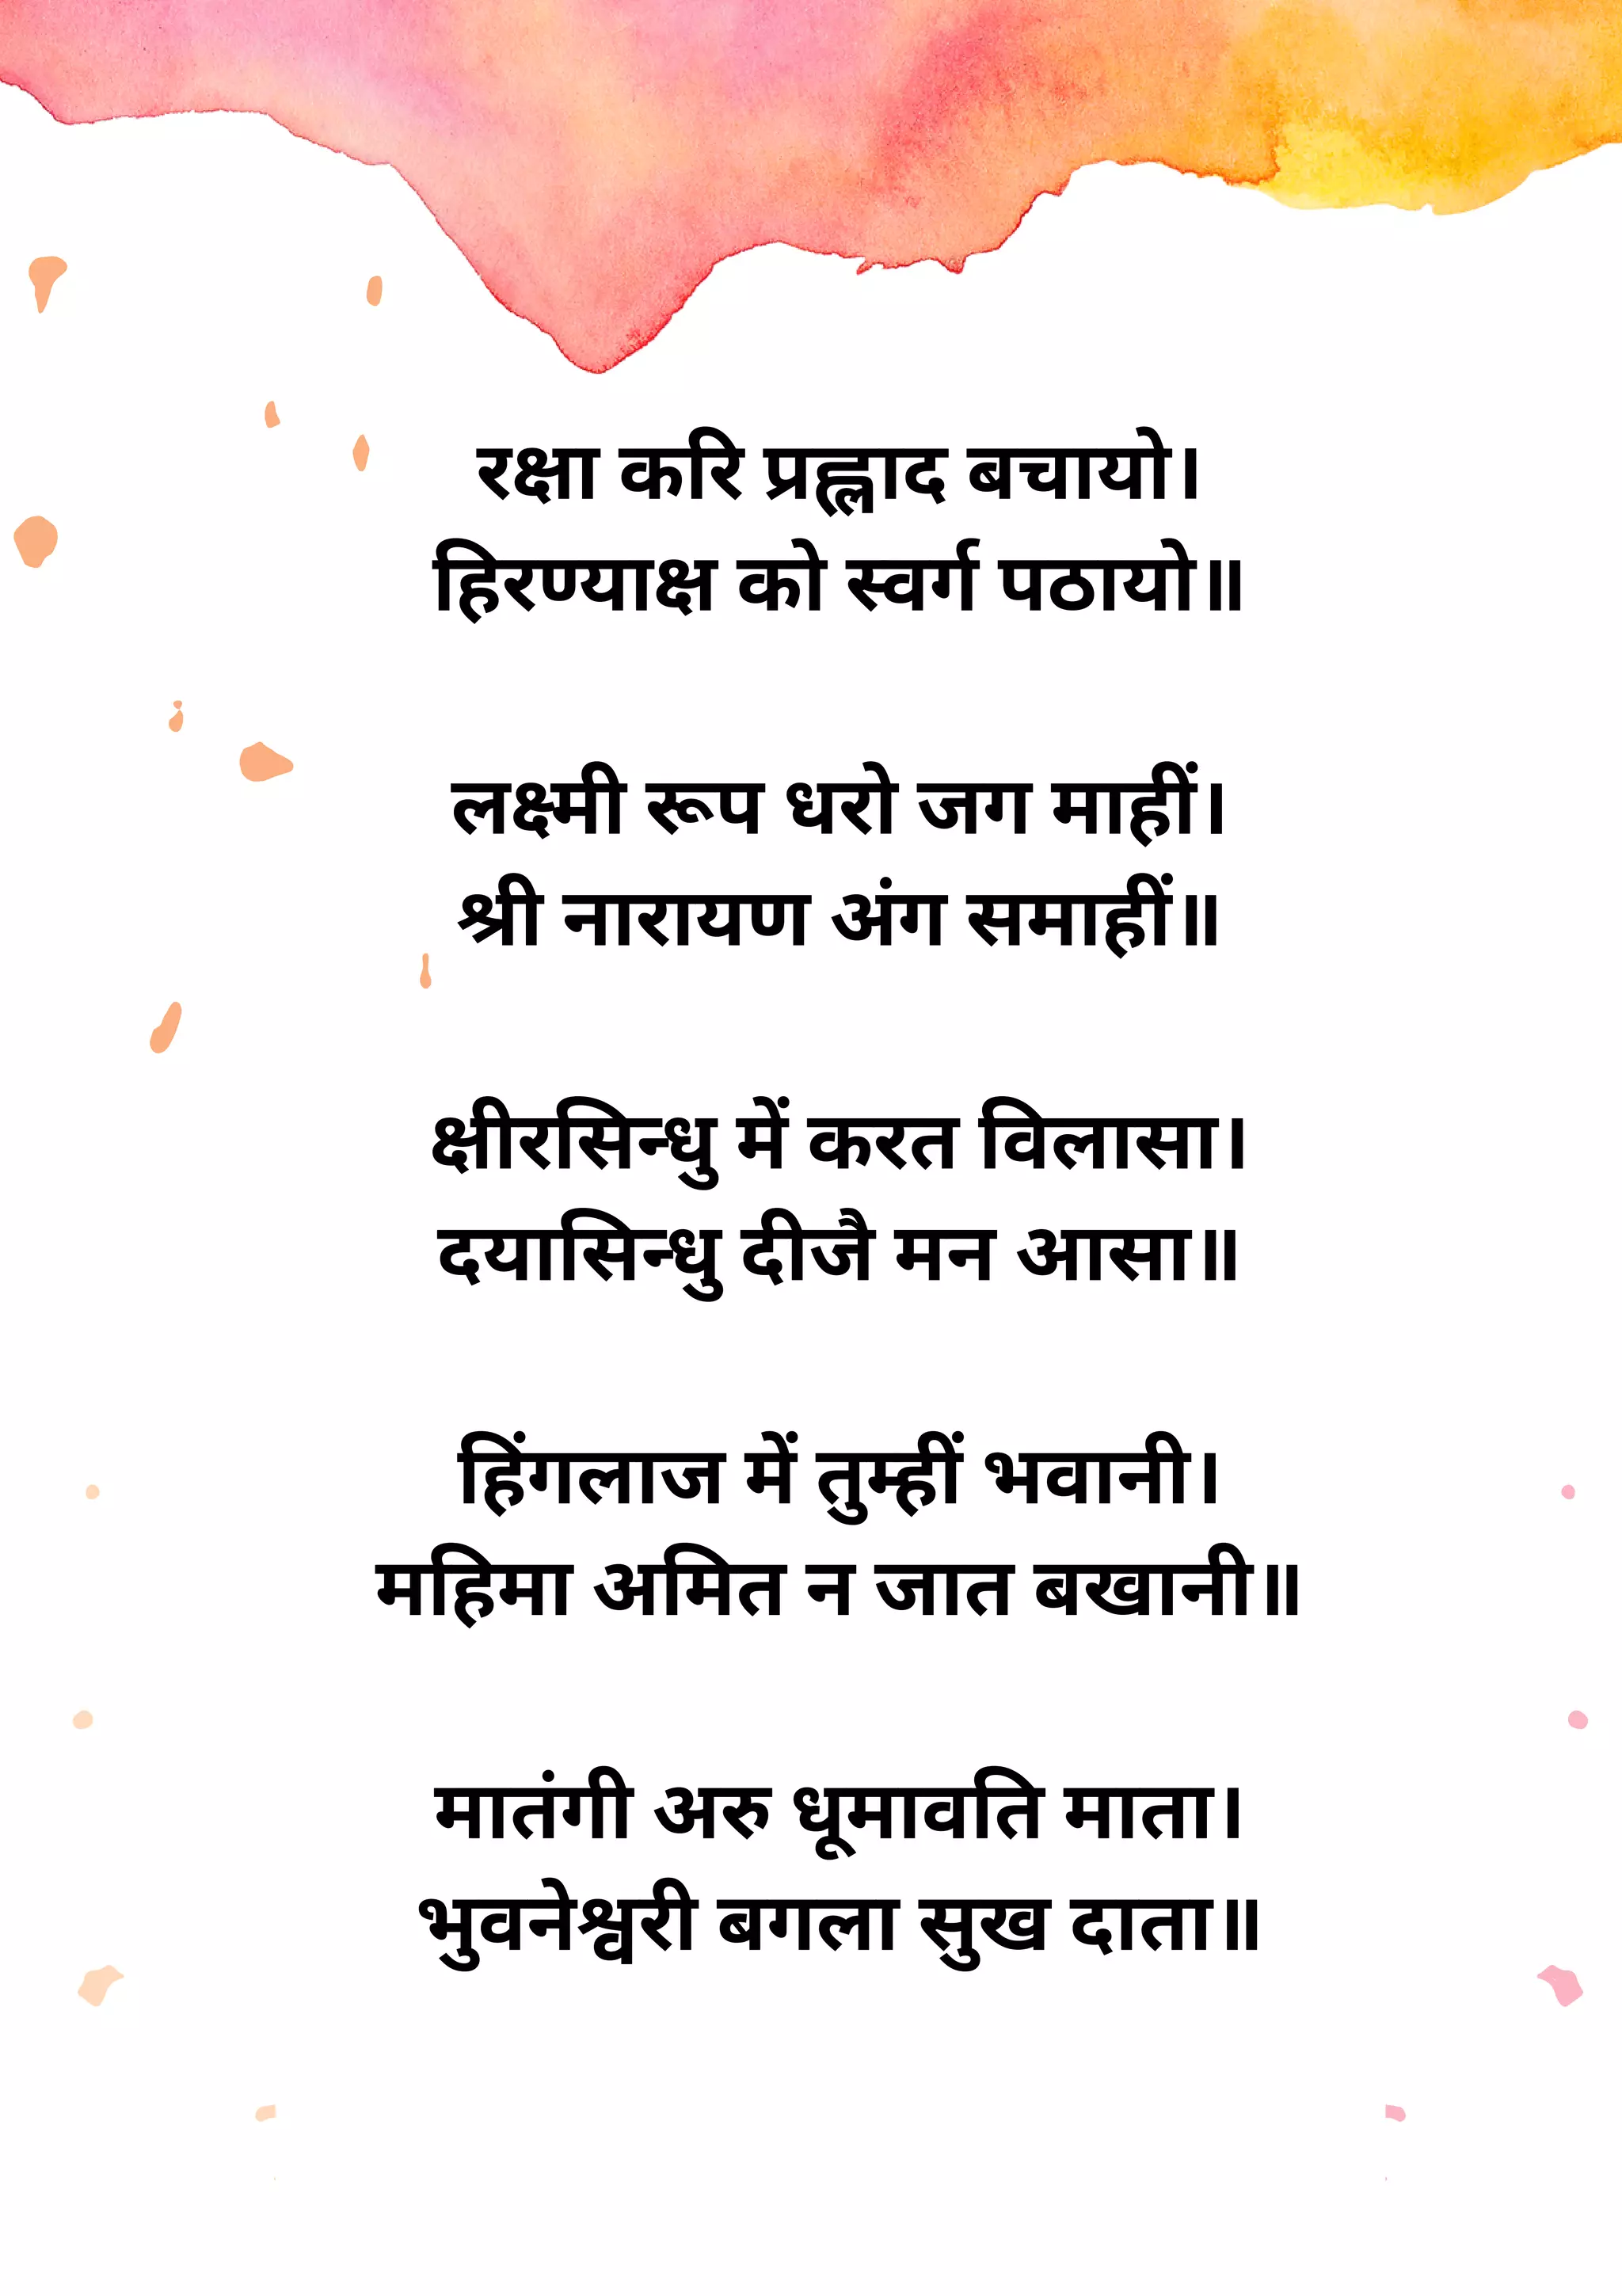 रक्षा करि प्रह्लाद बचायो।
हिरण्याक्ष को स्वर्ग पठायो॥
लक्ष्मी रूप धरो जग माहीं।
श्री नारायण अंग समाहीं॥
क्षीरसिन्धु में करत विलासा।
दयासिन्धु दीजै मन आसा॥
हिंगलाज में तुम्हीं भवानी।
महिमा अमित न जात बखानी॥
मातंगी अरु धूमावति माता।
भुवनेश्वरी बगला सुख दाता॥